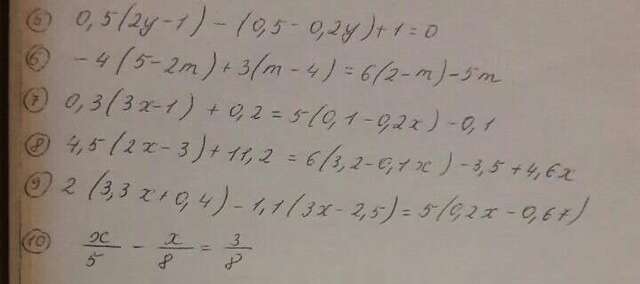 5) 0,5(2y-1) - (0,5-0,2y)+1=0
6) -4(5-2m)+3(m-4)=6(2-m)-5m
7) 0,3(3x-1)+0,2=5(0,1-0,2x)-0,1
8) 4,5(2x-3)+11,2=6(3,2-0,1x)-3,5+4,6x
9) 2(3,3x+0,4)-1,1(3x-2,5)=5(0,2x-0,67)
10) x/5 - x/8 = 3/8